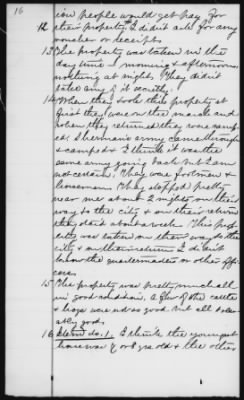 16
ion people would get pay for
12 their property I didn't ask for any
voucher or receipts.
13 The property was taken in the
day time - morning & afternoon
nothing at night. They didn't
take any of it secretly.
14 When they took this property at
first they were on the march and
when they returned they were camped
Shermans army came through
& camped & I think it was the
same army going back but I am
not certain. They were footmen &
horsemen They stopped pretty
near me about 2 nights on their
way to the city & on their return
they staid about a week. This property
was taken on their way to the
city & on their return I did not
know the quartermaster or other officers
15 The property was pretty much all
in good condition. a few of the cattle
& hogs were not so good but all tolerably
good.
16 Item No. 1. I think the youngest
horse was 7 or 8 yrs old & the other